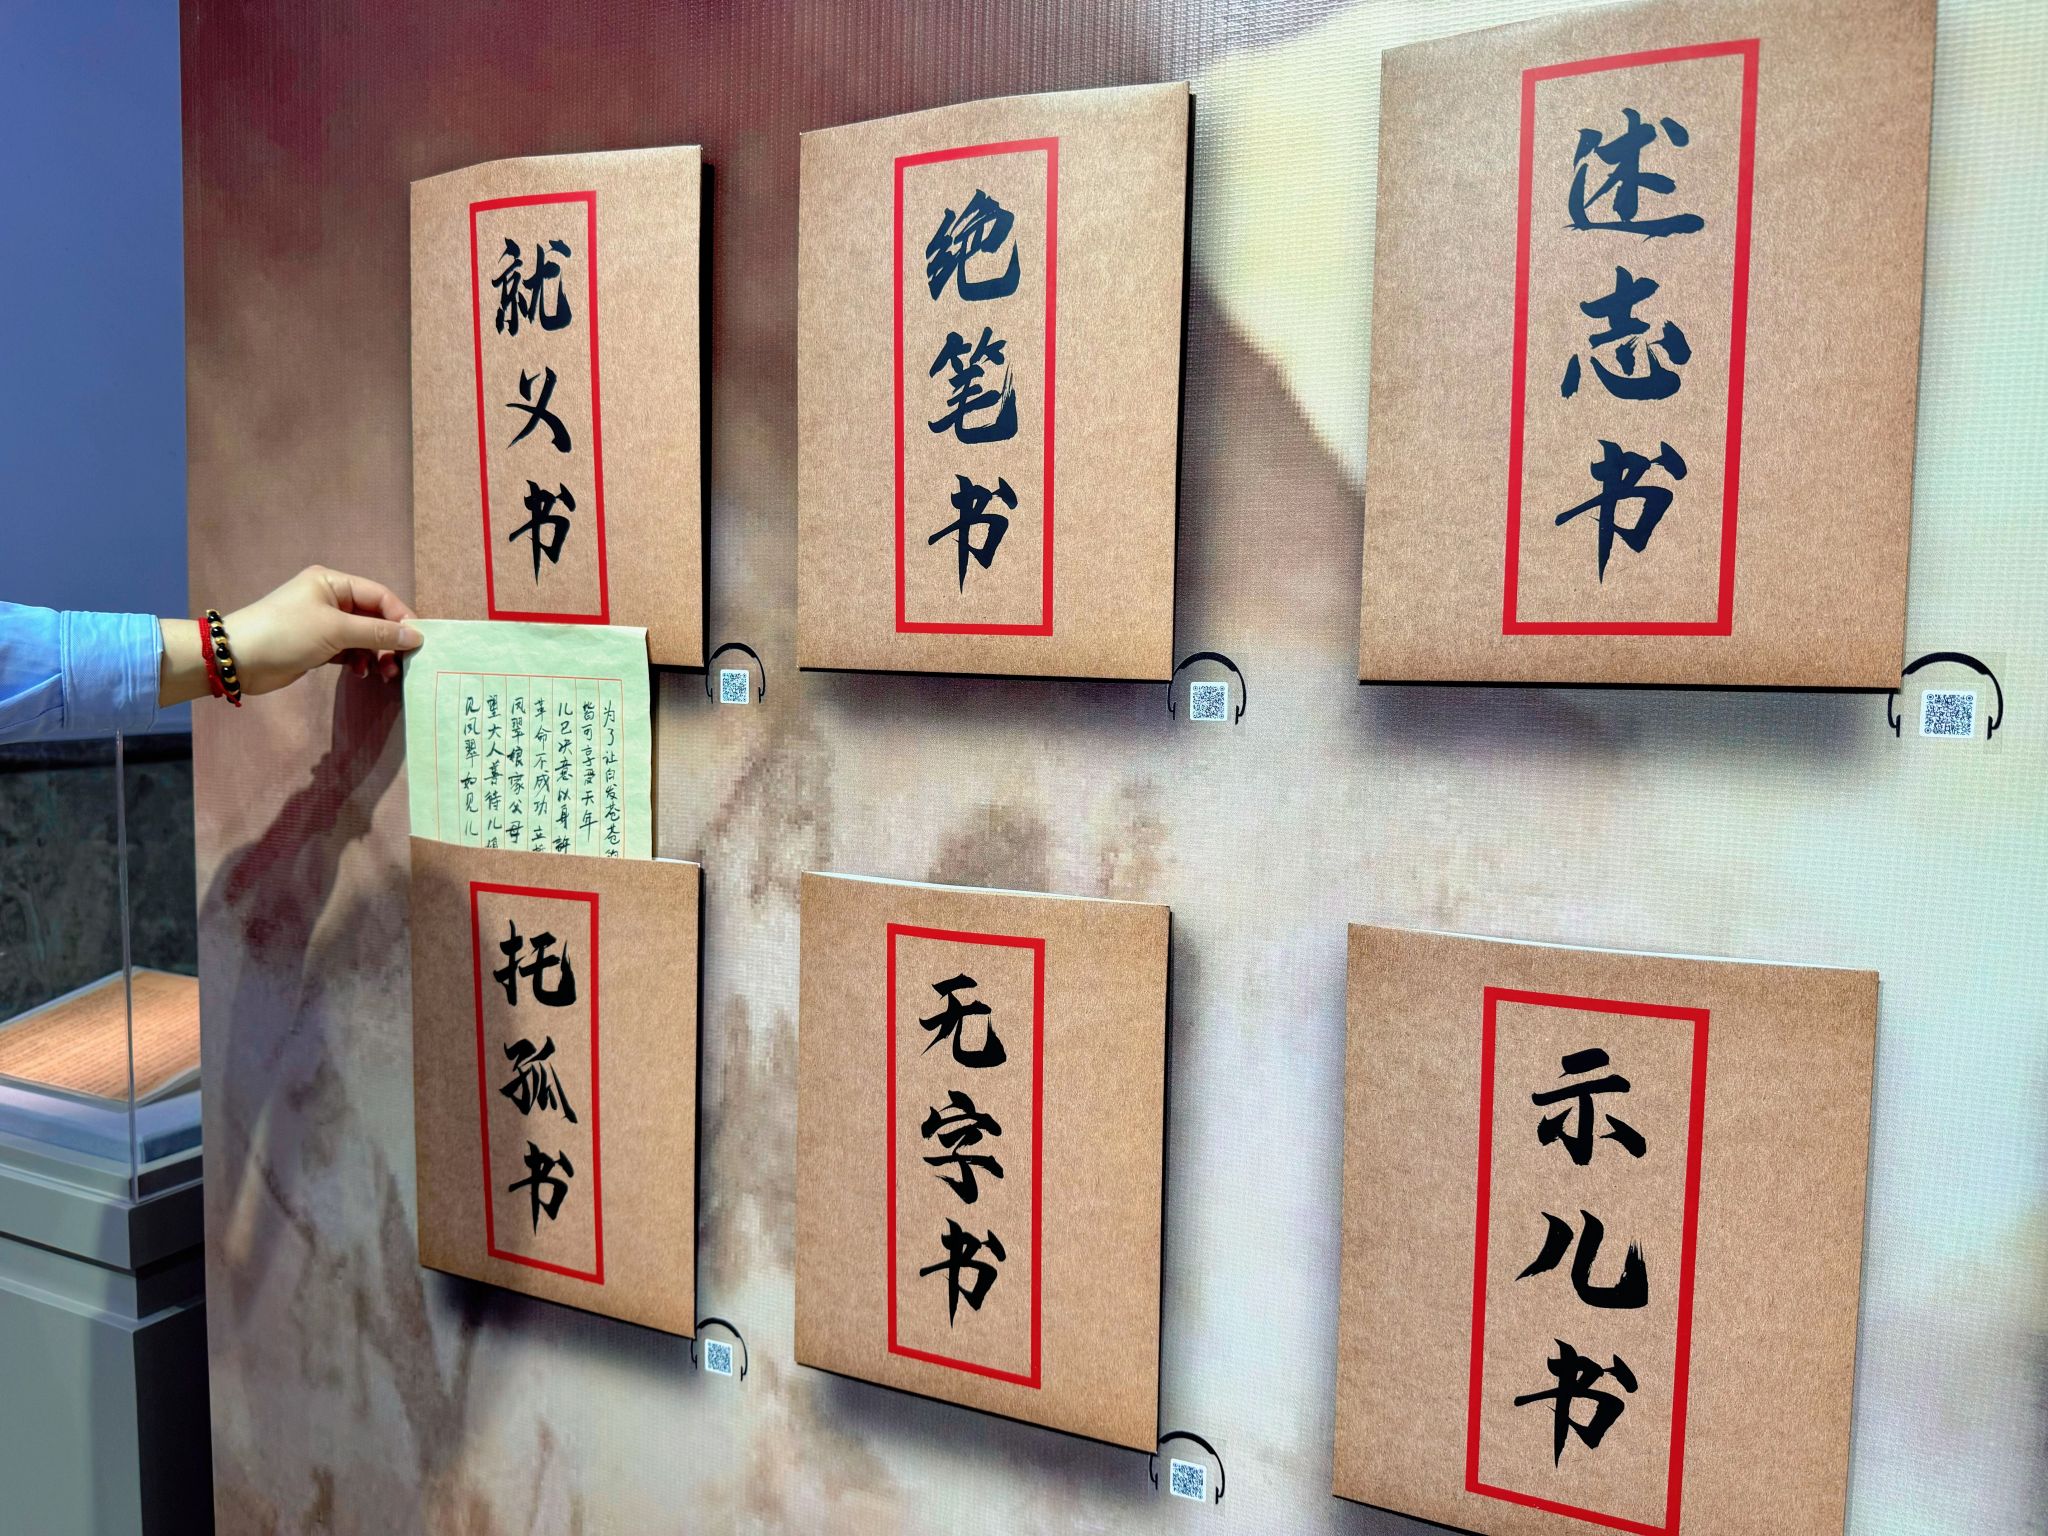 就义书
绝笔书
述志书
为了让白发苍苍的
皆可享受天年
儿已决意以身许
革命不成功立
凤翠娘家父母
望大人善待儿
见凤翠如见儿
托孤书
无字书
示儿书